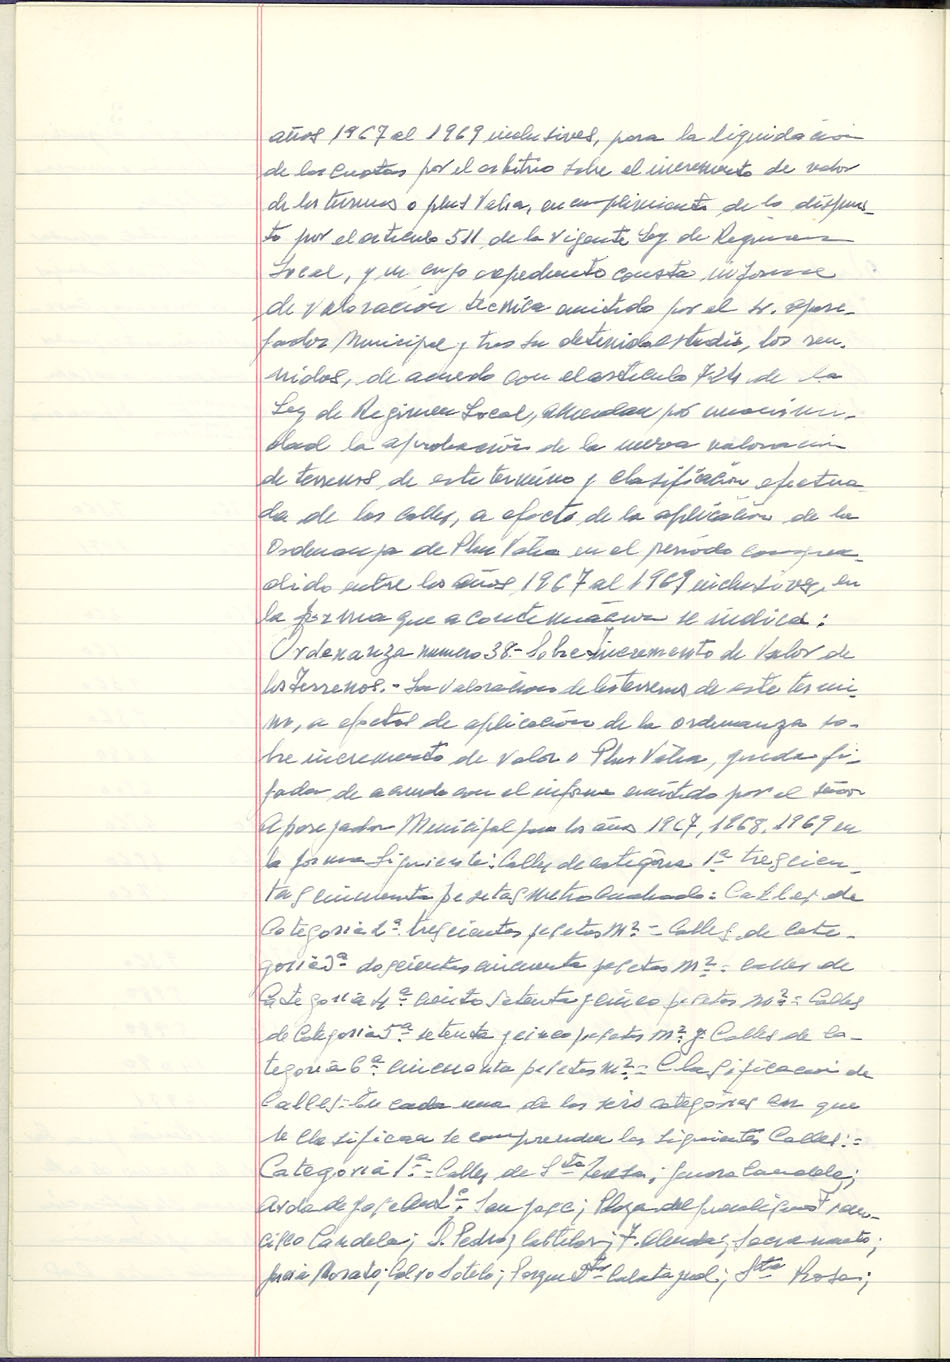 años 1967 al 1969 inclusives, para la liquidación
de las cuotas por el arbitrio sobre el incremento de valor
de los terrenos o plus Valia, en cumplimiento de lo dispues-
to por el articulo 511 de la Vigente Ley de Regimen
Local, y en cuyo expediente consta informe
de valoración tecnica emitido por el Sr. Apare-
jador Municipal y tras su detenido estudio, los reu-
nidos, de acuerdo con el articulo 724 de la
Ley de Regimen Local, acuerdan por unanimi-
dad la aprobación de la nueva valoración
de terrenos de este termino y clasificación efectua-
da de las calles, a efecto de la aplicación de la
Ordenanza de Plus Valia en el periodo compren-
dido entre los años 1967 al 1969 inclusives, en
la forma que a continuación se indica:
Ordenanza numero 38.- Sobre Incremento de Valor de
los Terrenos.- La Valoracion de los terrenos de este termi-
no, a efectos de aplicación de la ordenanza so-
bre incremento de Valor o Plus Valia, queda fi-
jada de acuerdo con el informe emitido por el señor
Aparejador Municipal para los años 1967, 1968, 1969 en
la forma siguiente: Calles de categoria 1ª trescien-
tas cincuenta pesetas metro cuadrado = Calles de
Categoria 2ª trescientas pesetas m² = Calles de Cate-
goria 3ª doscientas cincuenta pesetas m² = Calles de
Categoria 4ª ciento setenta y cinco pesetas m² = Calles
de Categoria 5ª setenta y cinco pesetas m² y Calles de Ca-
tegoria 6ª cincuenta pesetas m² = Clasificación de
Calles: En cada una de las seis categorias en que
se clasifican se comprenden las siguientes Calles: =
Categoria 1ª = Calles de Sta Teresa;
Avda de Jose Antº; San Jose; Plaza del Fran-
cisco Candela; D. Pedro; Sacramento;
Morato; Calvo Sotelo; Parque Dtor Calatayud; Sta Rosa;